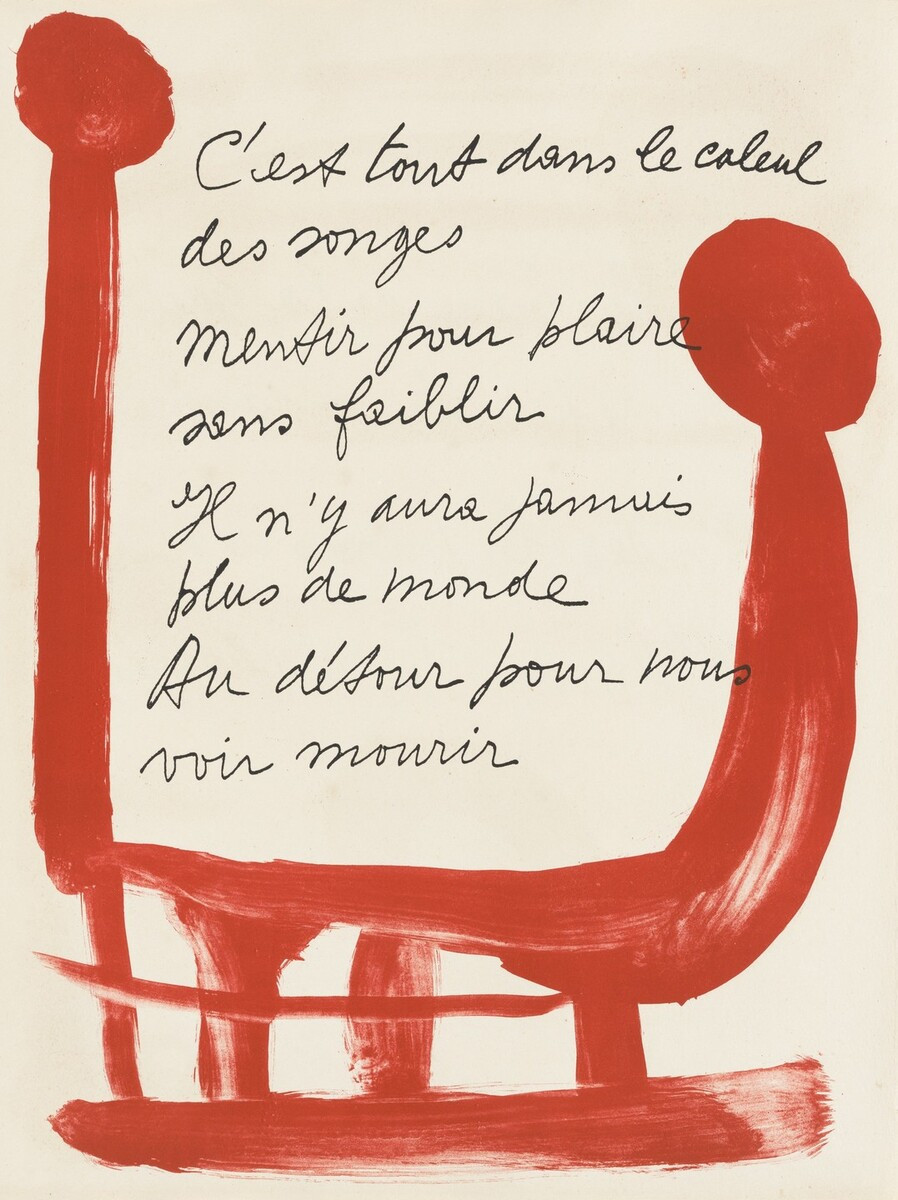 C'est tout dans le calcul
des songes
Mentir pour plaire
sans faiblir
Il n'y aura jamais
plus de monde
Au détour pour nous
voir mourir